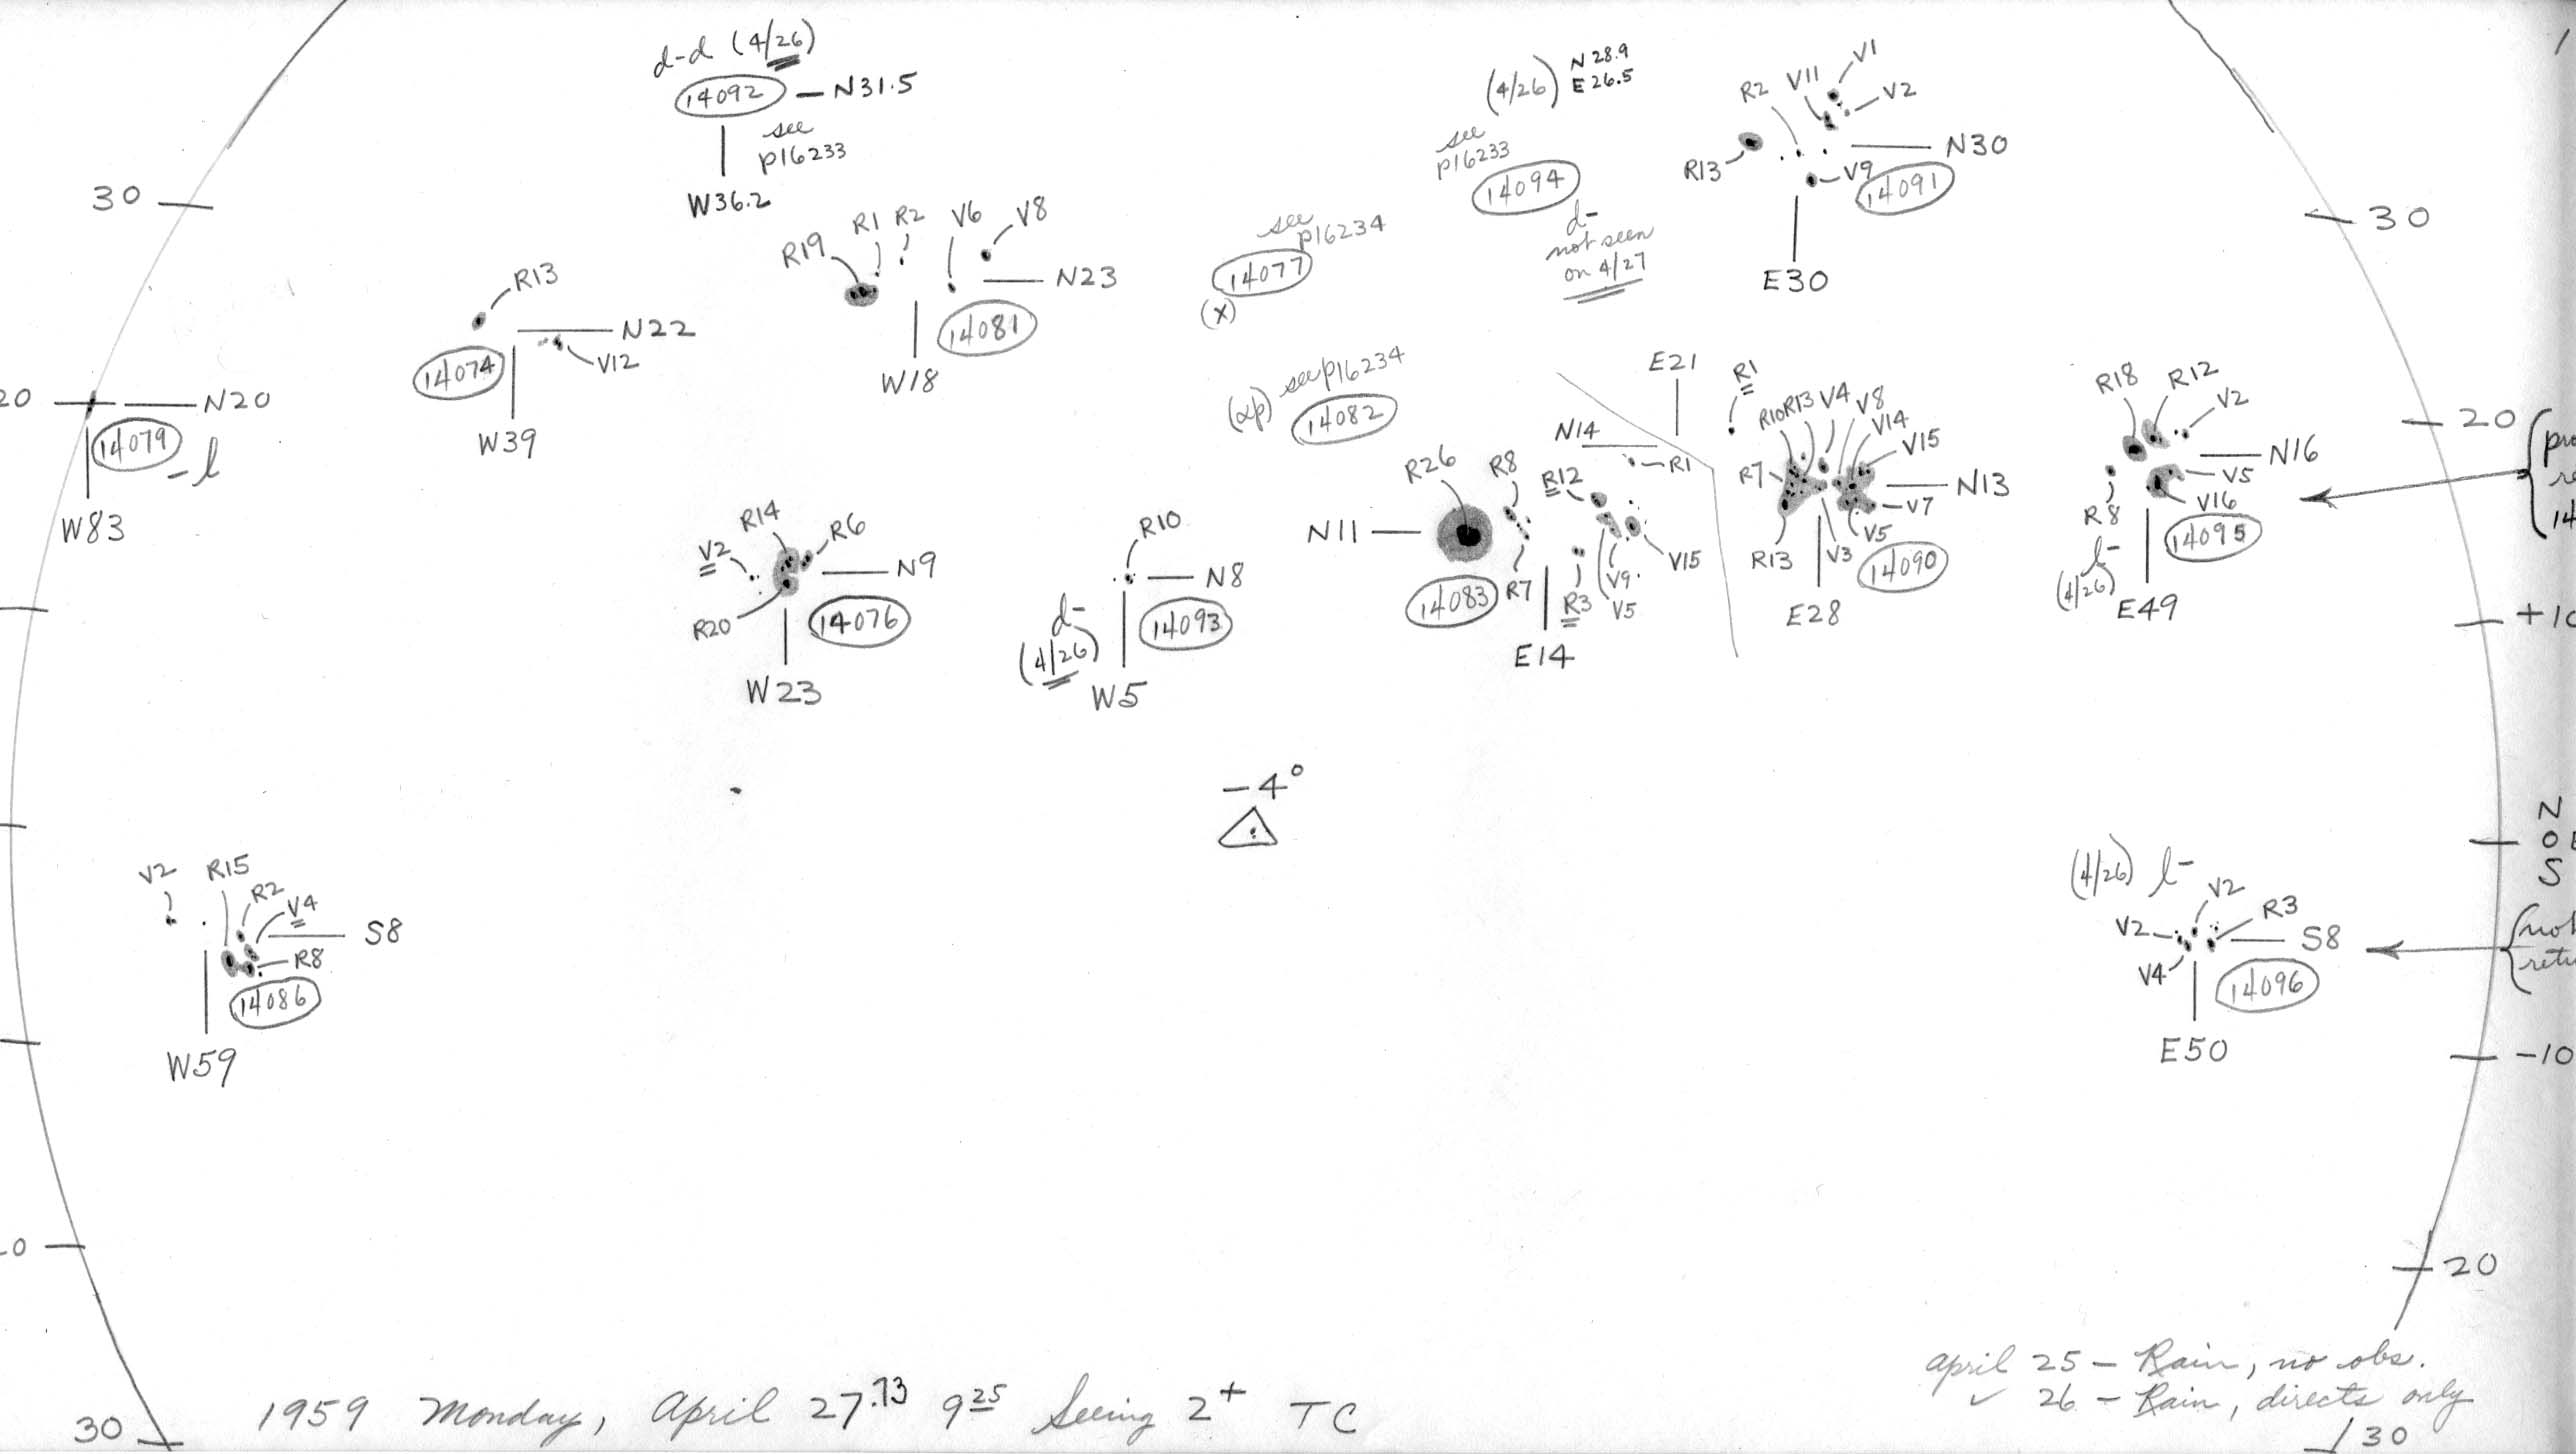 d-d (4/26)
14092 — N31.5
see
p16233
W36.2
(4/26) N 28.9
E 26.5
see
p16233
14094
d-
not seen
on 4/27
R2 V11 V1
V2
R13
N30
V9
14091
E30
30
30
see
p16234
14077
(x)
R19 R1 R2 V6 V8
N23
14081
W18
R13
N22
14074
V12
W39
20
N20
14079
-l
W83
(αp) see p16234
14082
N11
R26 R8 R12
14083
R7 R3 V9 V5
V15
E14
E21
N14
R1
R1
R10 R13 V4 V8
V14
V15
R7
N13
V7
V5
R13 V3
14090
E28
R18 R12 V2
N16
V5
V16
R8
14095
l-
(4/26)
E49
20
14
R14
V2
R6
N9
R20
14076
W23
R10
N8
d-
14093
(4/26)
W5
+10
-4°
N
0
S
V2 R15
R2
V4
S8
R8
14086
W59
(4/26) l-
V2
V2
R3
S8
V4
14096
E50
-10
20
30
1959 Monday, April 27.73 9 25 Seeing 2+ TC
April 25 - Rain, no obs.
✓ 26 - Rain, directs only
30